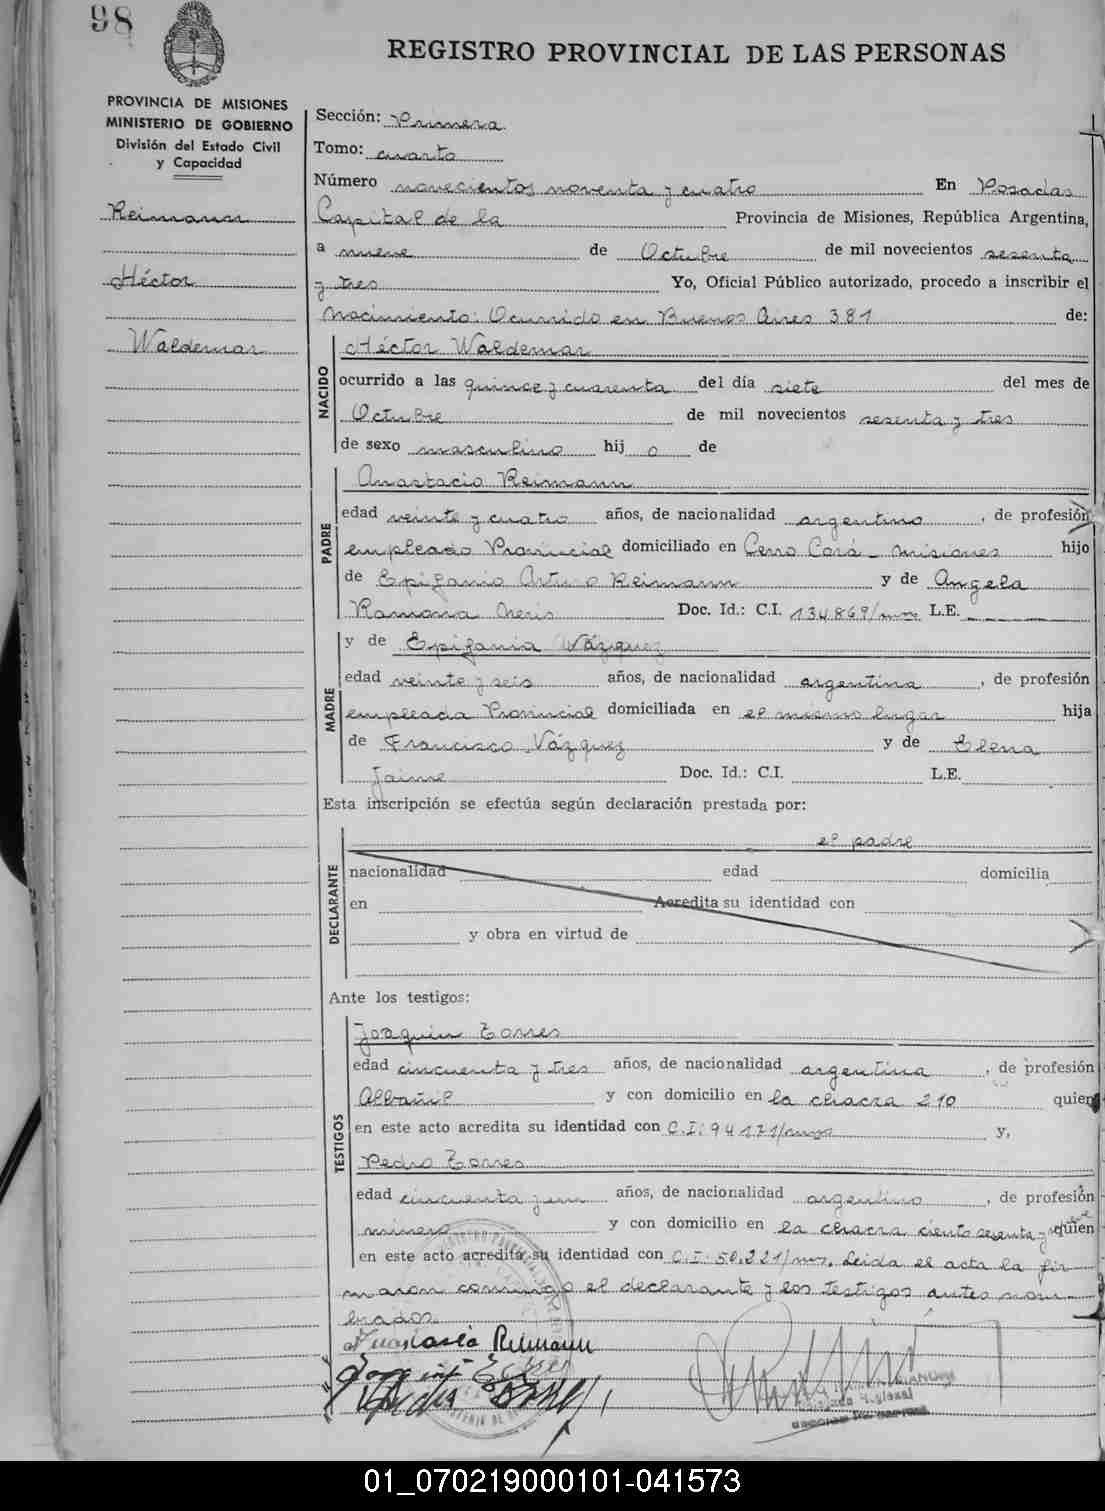 98
REGISTRO PROVINCIAL DE LAS PERSONAS
PROVINCIA DE MISIONES
MINISTERIO DE GOBIERNO
División del Estado Civil
y Capacidad
Reimann
Héctor
Waldemar
Sección: Primera
Tomo: cuarto
Número novecientos noventa y cuatro En Posadas
Capital de la Provincia de Misiones, República Argentina,
a nueve de Octubre de mil novecientos sesenta
y tres Yo, Oficial Público autorizado, procedo a inscribir el
Nacimiento: Ocurrido en Buenos Aires 381 de:
NACIDO
Héctor Waldemar
ocurrido a las quince y cuarenta del día siete del mes de
Octubre de mil novecientos sesenta y tres
de sexo masculino hij o de
PADRE
Anastacio Reimann
edad veinte y cuatro años, de nacionalidad argentino, de profesión
empleado Provincial domiciliado en Cerro Corá - Misiones hijo
de Epifanio Arturo Reimann y de Angela
Ramona Neris Doc. Id.: C.I. 134.869/mnes L.E.
y de Epifania Vázquez
MADRE
edad veinte y seis años, de nacionalidad argentina, de profesión
empleada Provincial domiciliada en el mismo lugar hija
de Francisco Vázquez y de Elena
Jaime Doc. Id.: C.I. L.E.
Esta inscripción se efectúa según declaración prestada por:
el padre
DECLARANTE
nacionalidad edad domicilia
en Acredita su identidad con
y obra en virtud de
Ante los testigos:
TESTIGOS
Joaquin Torres
edad cincuenta y tres años, de nacionalidad argentina, de profesión
Albañil y con domicilio en la chacra 210 quien
en este acto acredita su identidad con C.I: 94171/mnes y,
Pedro Torres
edad cincuenta y un años, de nacionalidad argentino, de profesión
minero y con domicilio en la chacra ciento sesenta y nueve quien
en este acto acredita su identidad con C.I: 50.221/mns. Leida el acta la fir
maron conmigo el declarante y los testigos antes nom-
brados.
Anastacio Reimann
01_070219000101-041573